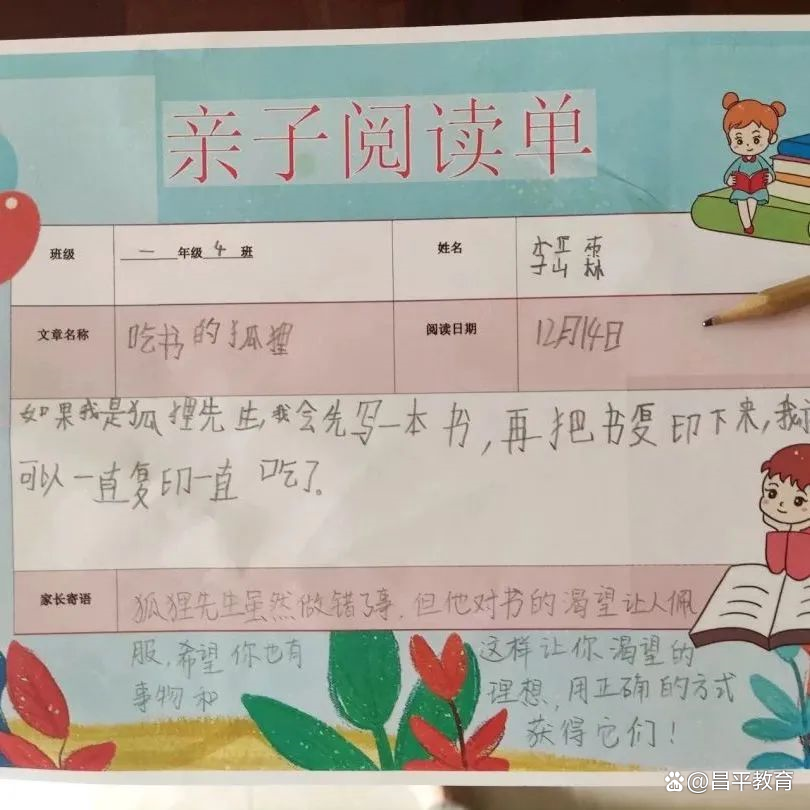 亲子阅读单
班级 一年级4班 姓名 李亚森
文章名称 吃书的狐狸 阅读日期 12月14日
如果我是狐狸先生,我会先写一本书,再把书复印下来,我
可以一直复印一直吃了。
家长寄语 狐狸先生虽然做错了事,但他对书的渴望让人佩
服,希望你也有 这样让你渴望的
事物和 理想,用正确的方式
获得它们!
@昌平教育